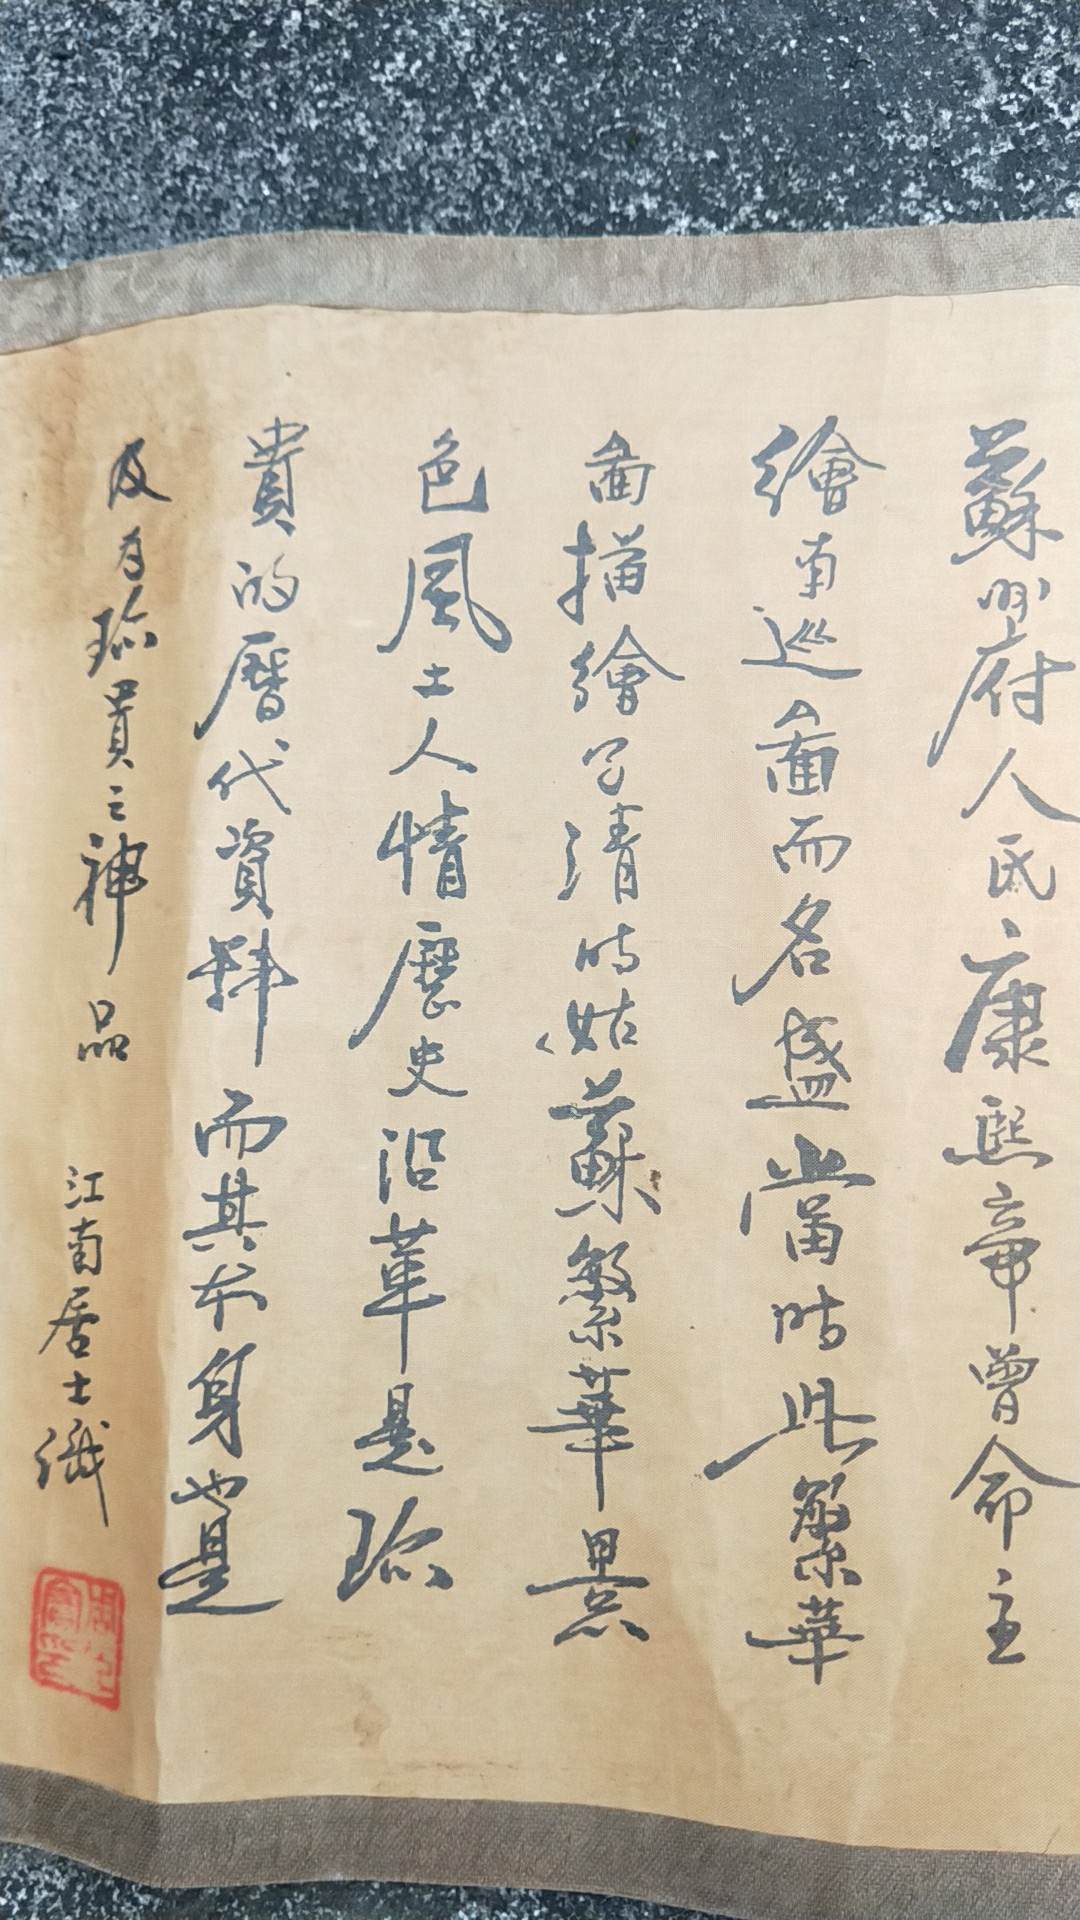 蘇州府人民康熙帝曾命主
繪南巡圖而名盛當時此繁華
圖描繪了清時姑蘇繁華景
色風土人情歷史沿革是珍
貴的曆代資料而其本身也是
及为珍貴之神品
江南居士識